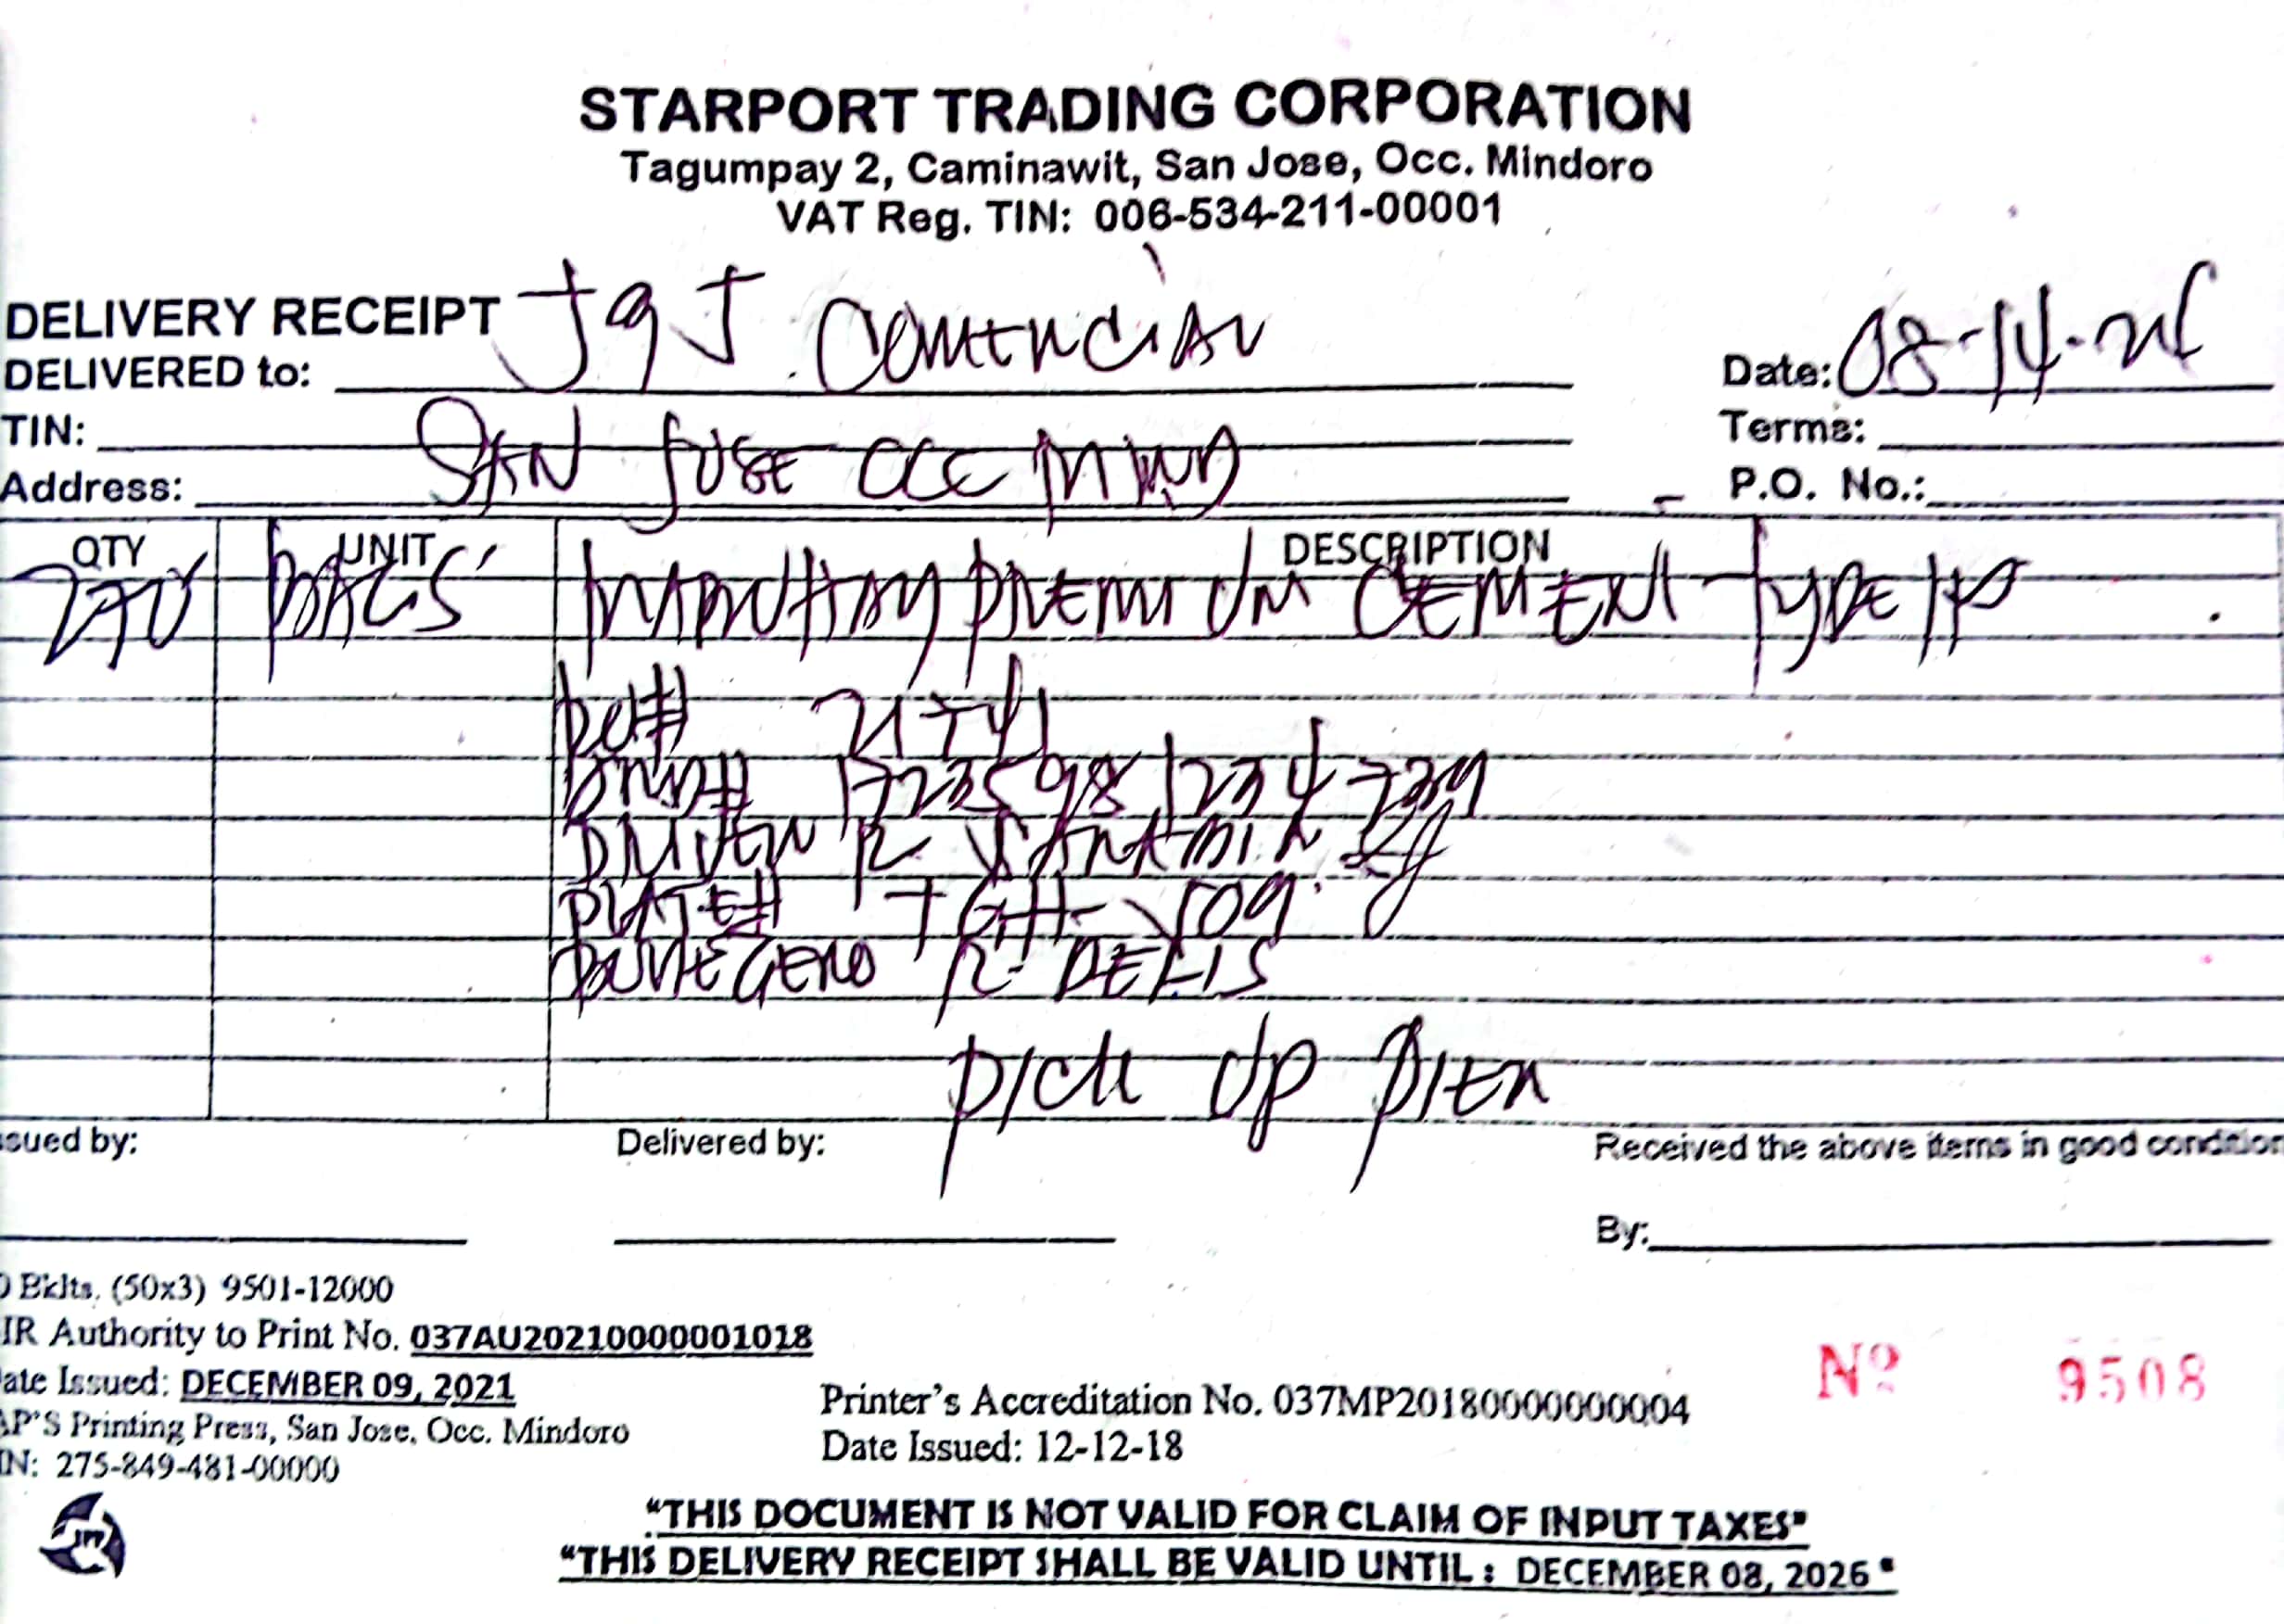 STARPORT TRADING CORPORATION
Tagumpay 2, Caminawit, San Jose, Occ. Mindoro
VAT Reg. TIN: 006-534-211-00001
DELIVERY RECEIPT
DELIVERED to: J & J COMMERCIAL
Date: 08-14-
TIN:
Terms:
Address: SAN JOSE OCC MIND
P.O. No.:
QTY UNIT DESCRIPTION
270 BAGS PREMIUM CEMENT TYPE
DRIVER R
PLATE# TGH-
R
PICK UP PIER
ssued by:
Delivered by:
Received the above items in good condition
By:
Bklts. (50x3) 9501-12000
IR Authority to Print No. 037AU20210000001018
ate Issued: DECEMBER 09, 2021
AP'S Printing Press, San Jose, Occ. Mindoro
IN: 275-849-481-00000
Printer's Accreditation No. 037MP20180000000004
Date Issued: 12-12-18
Nº 9508
"THIS DOCUMENT IS NOT VALID FOR CLAIM OF INPUT TAXES"
"THIS DELIVERY RECEIPT SHALL BE VALID UNTIL : DECEMBER 08, 2026"